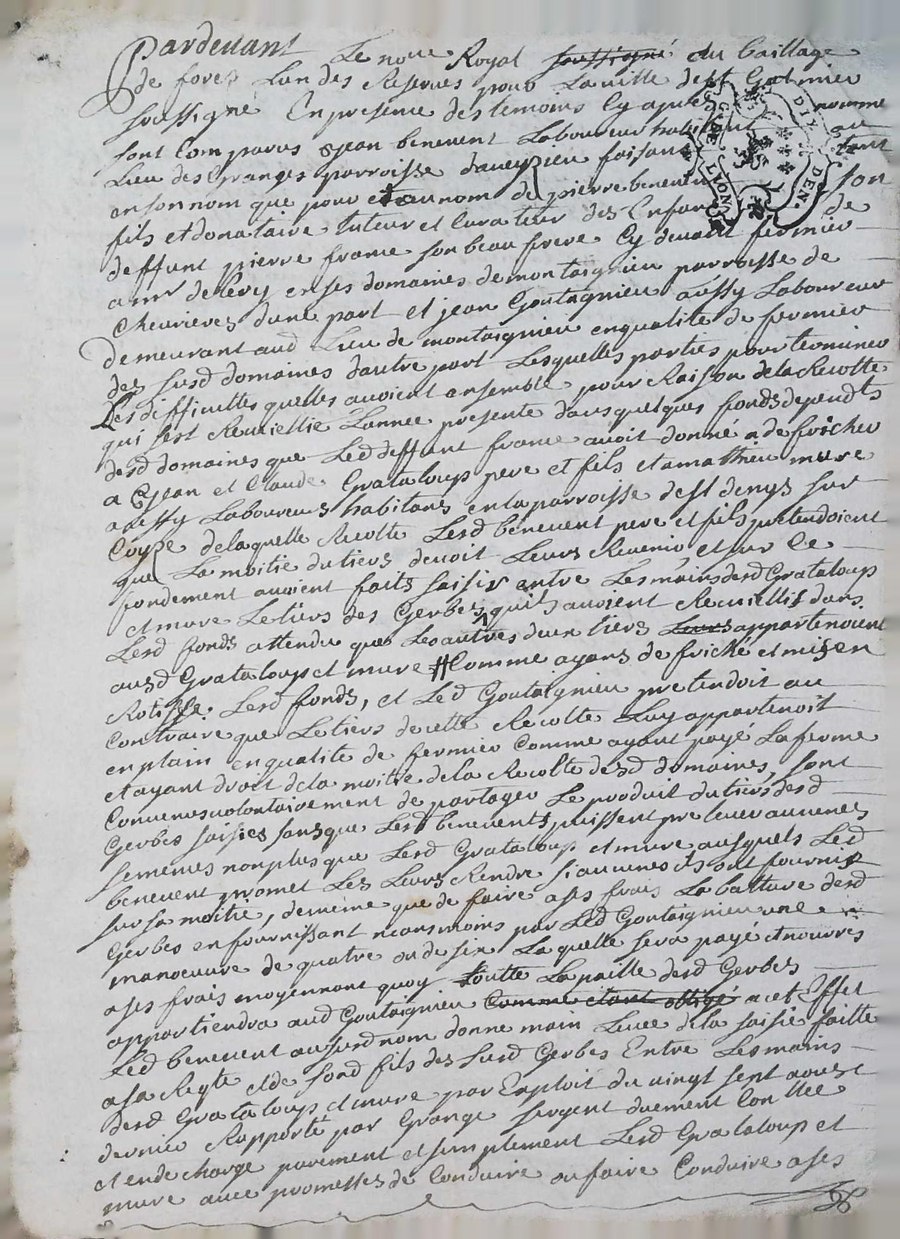 Pardevant Le nore Royal soussigné au baillage
de forez Lun des Reservés pour La ville de st Galmier
soussigné En presence des temoins Cy apres nommé
sont Comparus sr jean benevent Laboureur habitant au
Lieu des Granges parroisse daveyzieu faisant tant
en son nom que pour et au nom de pierre benevent son
fils et donataire tuteur et Curateur des Enfans de
deffunt pierre frame son beau frere Cy devant fermier
a mr de Levy en ses domaines de montaignieu parroisse de
Chevrieres dune part et jean Goutagnieu aussy Laboureur
demeurant aud Lieu de montaignieu en qualité de fermier
des susd domaines dautre part Lesquelles parties pour terminer
Les difficultes quelles avoient ensemble pour Raison de la Recolte
qui sest Recuiellie Lannee presente dans quelques fonds dependts
desd domaines que Led deffunt frame avoit donné a defricher
a Sr jean et Claude Grataloup pere et fils et a mathieu mure
aussy Laboureurs habitans en la parroisse de st denys sur
Coyze de laquelle Recolte Lesd benevent pere et fils pretendoient
que La moitié du tiers devoit Leurs Revenir, et sur Ce
fondement avoient faits saisir entre Les mains desd Grataloup
et mure Le tiers des Gerbes quils avoient Recuiellis dans
Lesd fonds attendu que Les autres deux tiers Leurs appartenoient
ausd Grataloup et mure # Comme ayans defriché et mis en
Rotisse Lesd fonds, et Led Goutaignieu pretendoit au
Contraire que Le tiers de cette Recolte Luy appartenoit
en plain en qualité de fermier Comme ayant payé La ferme
et ayant droit de la moitié de la Recolte desd domaines, sont
Convenus volontairement de partager Le produit du tiers desd
Gerbes saisies sans que Lesd benevents puissent prelever aucunes
semences non plus que Lesd Grataloup et mure ausquels Led
benevent promet Les Leurs Rendre si aucunes ils ont fournis
sur sa moitié, de meme que de faire a ses frais La batture desd
Gerbes en fournissant neansmoins par Led Goutaignieu une
manoeuvre de quatre ou de six Laquelle sera payé et nourrie
a ses frais moyennant quoy toutte La paille desd Gerbes
appartiendra aud Goutaignieu Comme etant obligé a cet Effet
Led benevent ausurd nom donne main Levee de la saisie faitte
a sa Reqte et de sond fils des susd Gerbes Entre Les mains
desd Grataloup et mure par Exploit du vingt sept aoust
dernier Rapporté par Grange sergent duement Conllée
et en decharge purement et simplement Lesd Grataloup et
mure avec promesses de Conduire ou faire Conduire a ses
GNAL DE LYON DIX DEN.